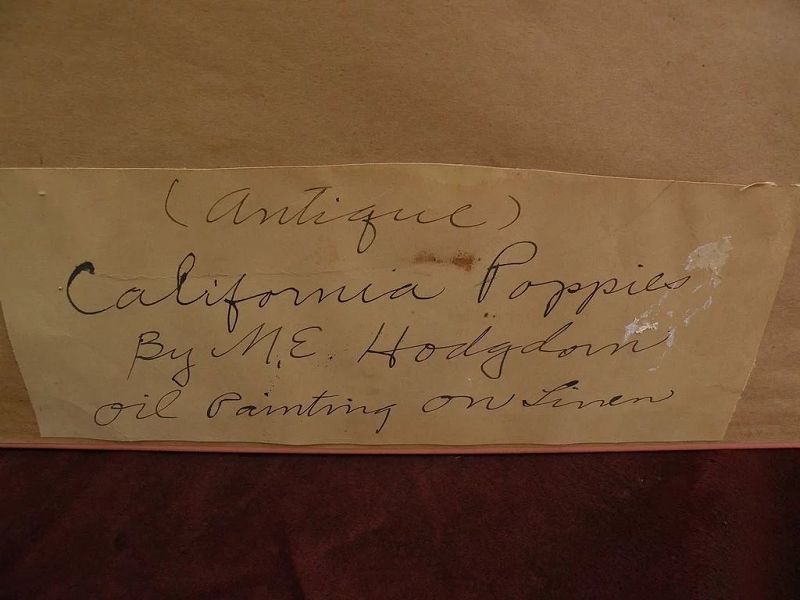 (Antique)
California Poppies
By M.E. Hodgdon
Oil Painting on Linen